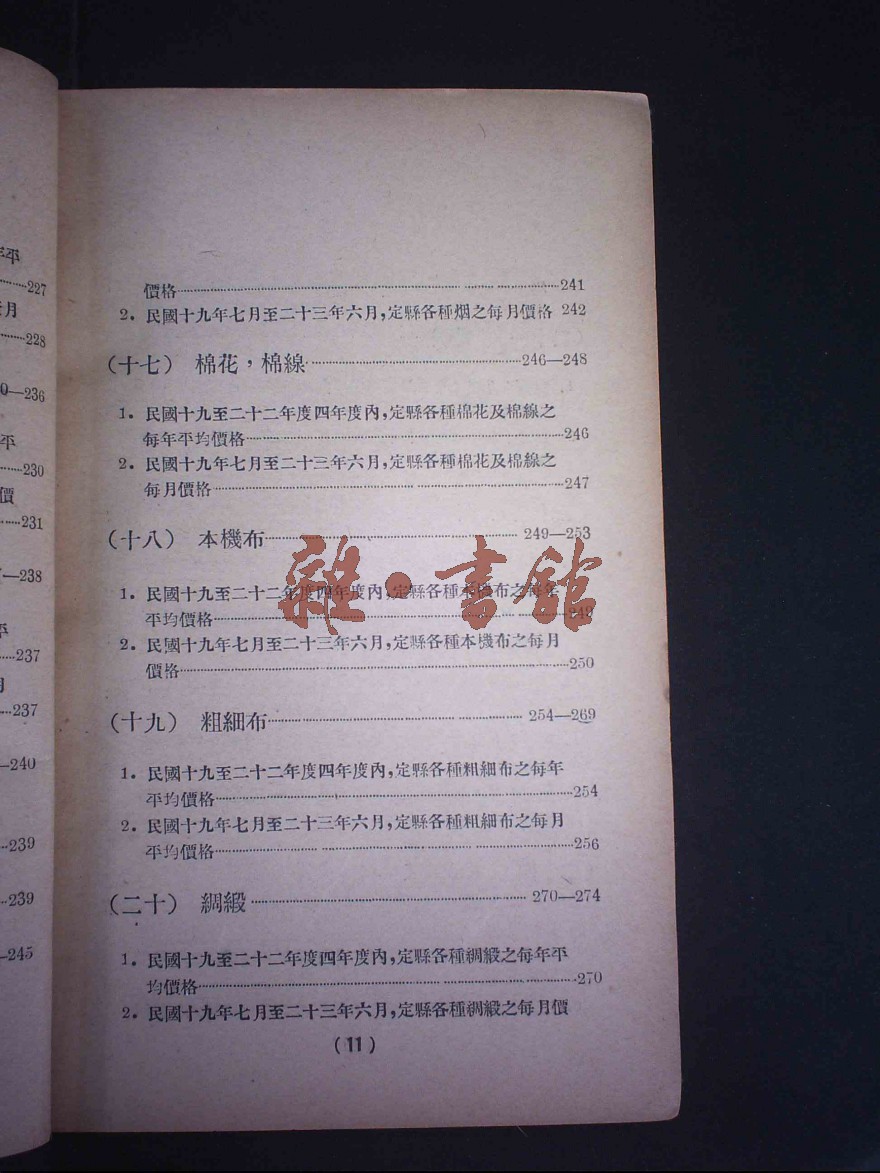 價格……241
2. 民國十九年七月至二十三年六月,定縣各種烟之每月價格 242
(十七) 棉花，棉線……246—248
1. 民國十九至二十二年度四年度內,定縣各種棉花及棉線之
每年平均價格……246
2. 民國十九年七月至二十三年六月,定縣各種棉花及棉線之
每月價格……247
(十八) 本機布……249—253
1. 民國十九至二十二年度四年度內,定縣各種本機布之每年
平均價格……249
2. 民國十九年七月至二十三年六月,定縣各種本機布之每月
價格……250
(十九) 粗細布……254—269
1. 民國十九至二十二年度四年度內,定縣各種粗細布之每年
平均價格……254
2. 民國十九年七月至二十三年六月,定縣各種粗細布之每月
平均價格……256
(二十) 綢緞……270—274
1. 民國十九至二十二年度四年度內,定縣各種綢緞之每年平
均價格……270
2. 民國十九年七月至二十三年六月,定縣各種綢緞之每月價
(11)
雜·書館
年平
……227
月
……228
0—236
平
……230
價
……231
—238
平
……237
月
…237
—240
…239
…239
—245